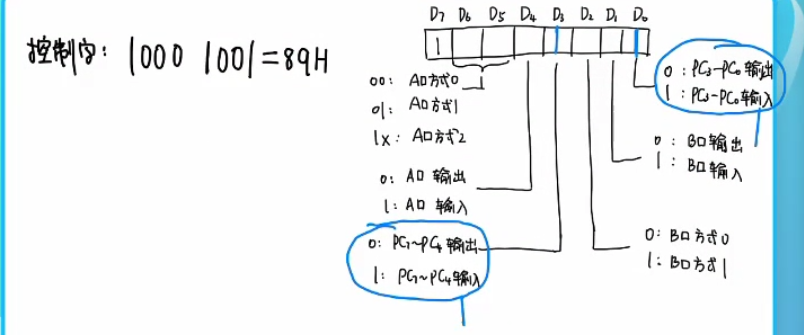 控制字: 1000 1001=89H
D7 D6 D5 D4 D3 D2 D1 D0
1
00: A口方式0
01: A口方式1
1x: A口方式2
0: A口 输出
1: A口 输入
0: PC7~PC4 输出
1: PC7~PC4 输入
0: PC3-PC0 输出
1: PC3-PC0 输入
0: B口输出
1: B口输入
0: B口方式0
1: B口方式1